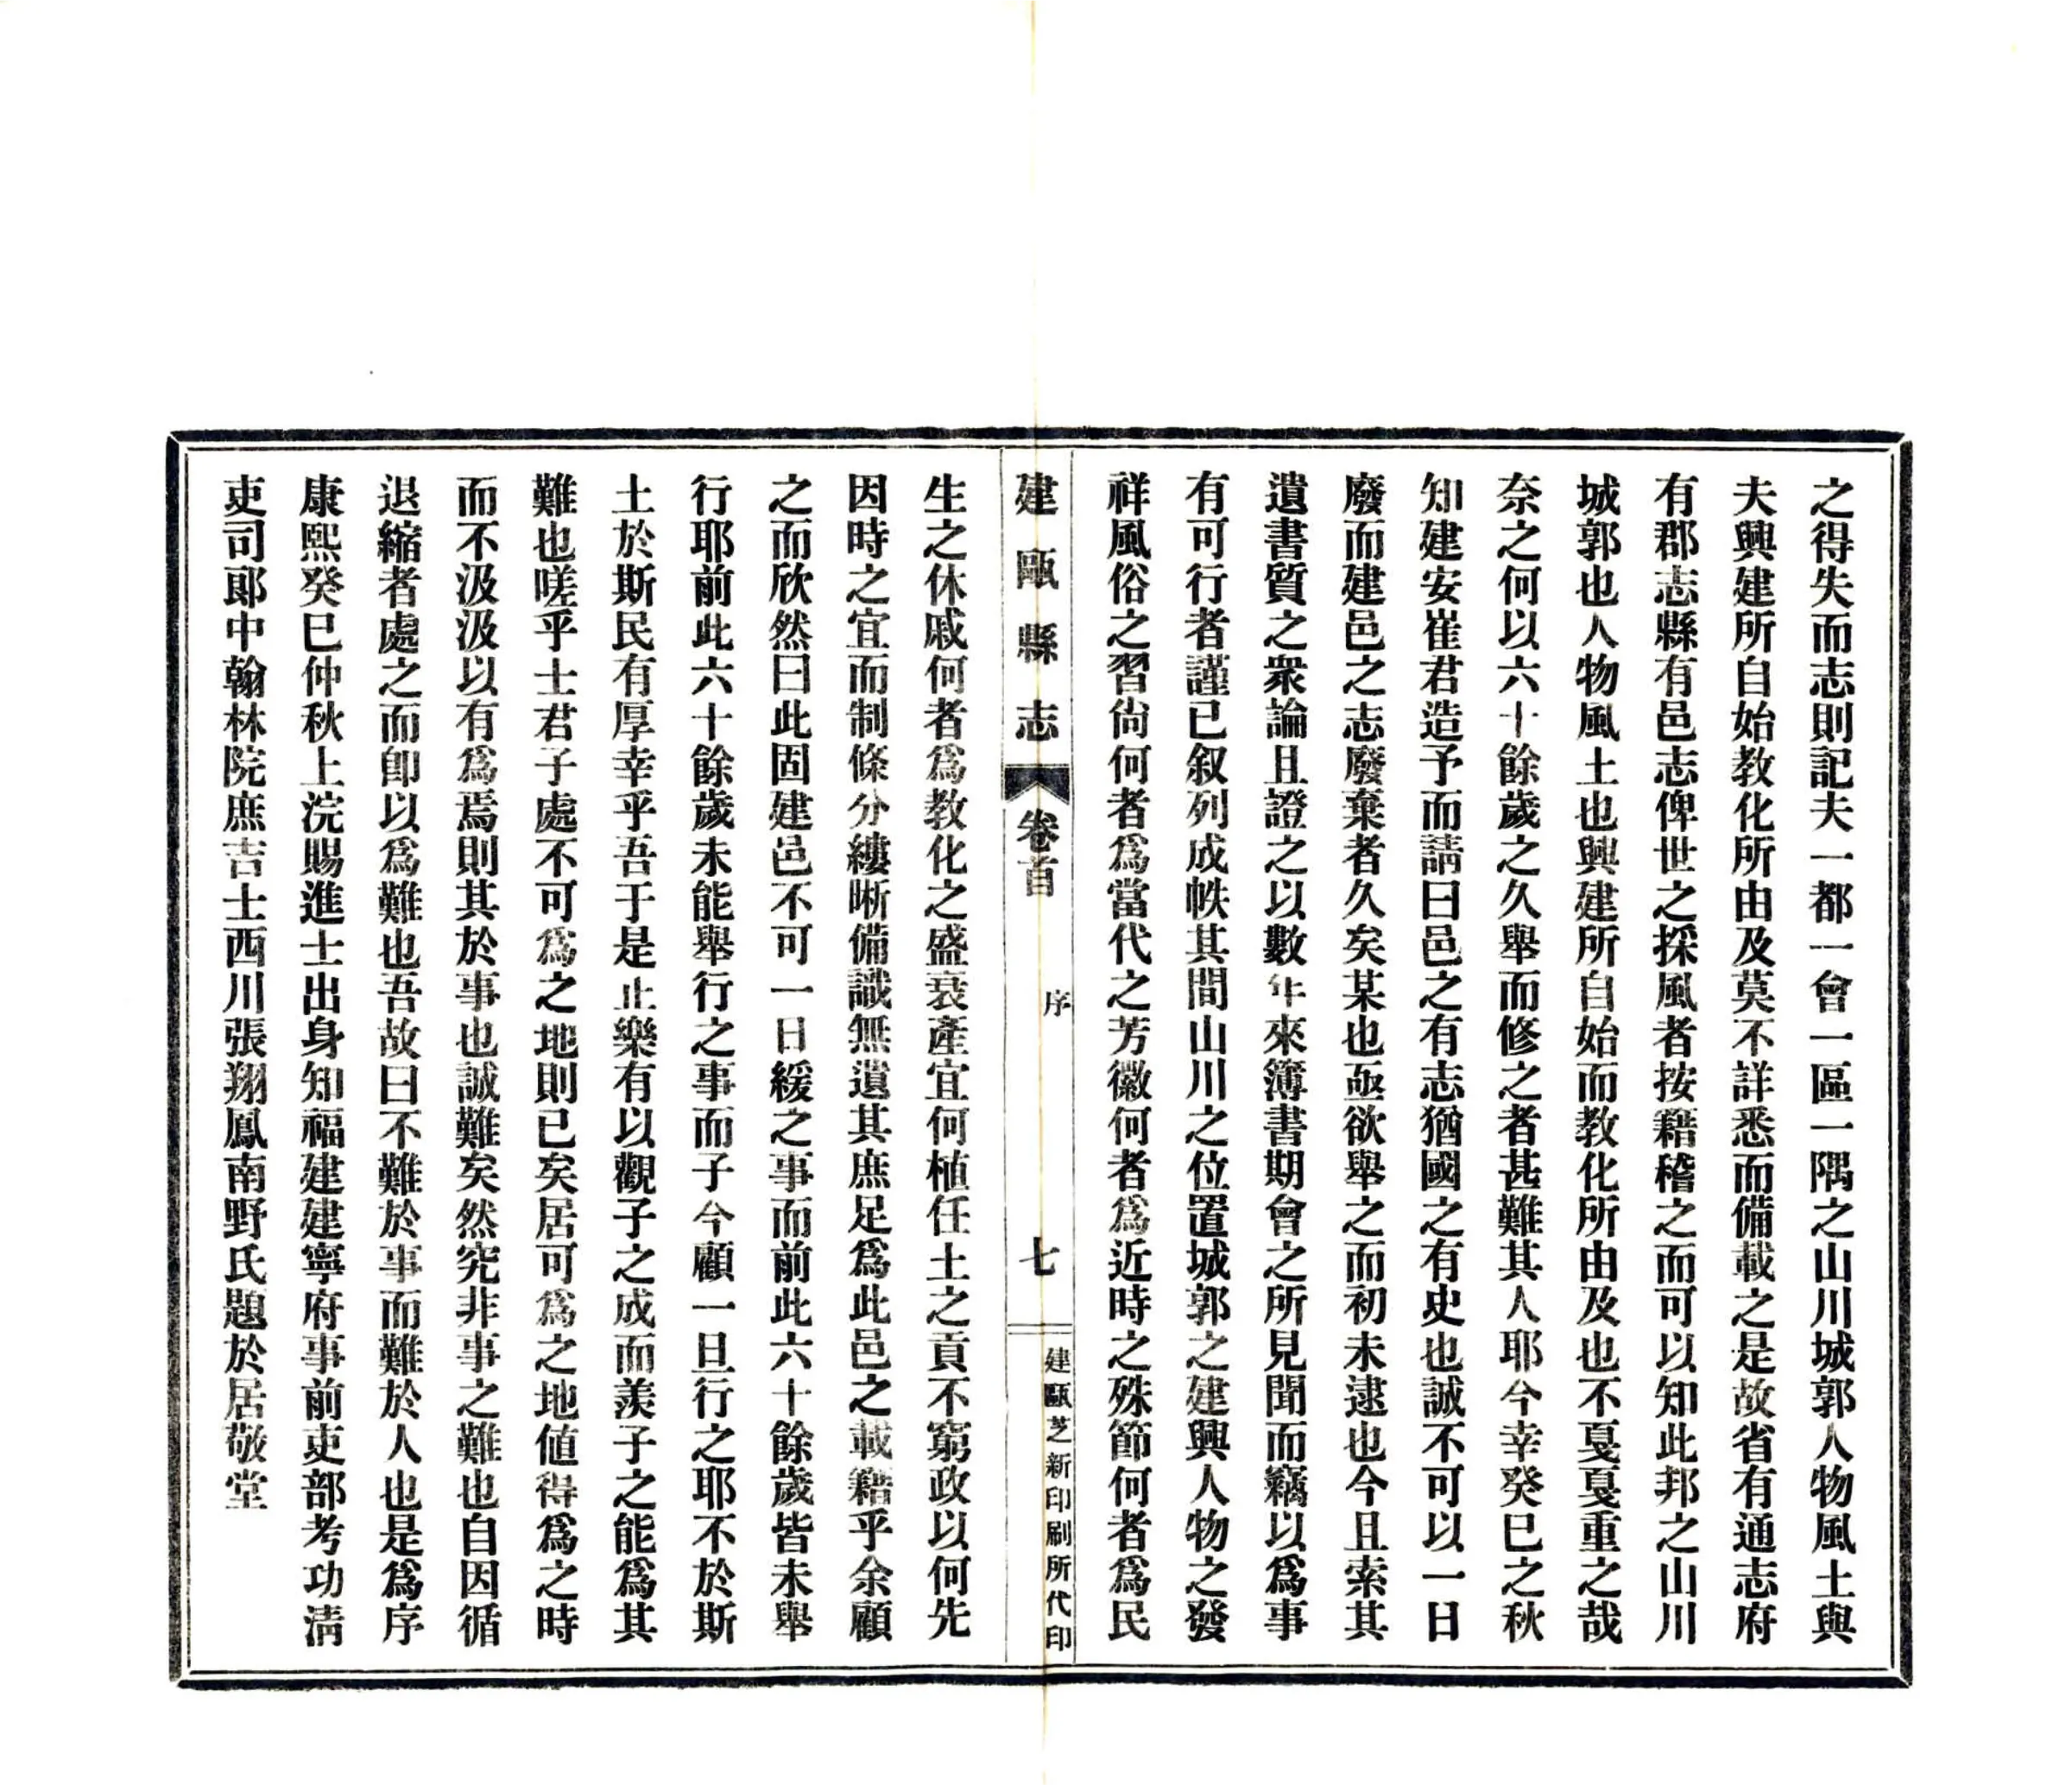 之得失而志則記夫一都一會一區一隅之山川城郭人物風土與
夫興建所自始教化所由及莫不詳悉而備載之是故省有通志府
有郡志縣有邑志俾世之採風者按籍稽之而可以知此邦之山川
城郭也人物風土也興建所自始而教化所由及也不戛戛重之哉
奈之何以六十餘歲之久舉而修之者甚難其人耶今幸癸巳之秋
知建安崔君造予而請曰邑之有志猶國之有史也誠不可以一日
廢而建邑之志廢棄者久矣某也亟欲舉之而初未逮也今且索其
遺書質之衆論且證之以數年來簿書期會之所見聞而竊以爲事
有可行者謹已叙列成帙其間山川之位置城郭之建興人物之發
祥風俗之習尙何者爲當代之芳徽何者爲近時之殊節何者爲民
建甌縣志
卷首
序
七
建甌芝新印刷所代印
生之休戚何者爲教化之盛衰產宜何植任土之貢不窮政以何先
因時之宜而制條分縷晰備識無遺其庶足爲此邑之載籍乎余顧
之而欣然曰此固建邑不可一日緩之事而前此六十餘歲皆未舉
行耶前此六十餘歲未能舉行之事而子今顧一旦行之耶不於斯
土於斯民有厚幸乎吾于是止樂有以觀子之成而羨子之能爲其
難也嗟乎士君子處不可爲之地則已矣居可爲之地値得爲之時
而不汲汲以有爲焉則其於事也誠難矣然究非事之難也自因循
退縮者處之而卽以爲難也吾故曰不難於事而難於人也是爲序
康熙癸巳仲秋上浣賜進士出身知福建建寧府事前吏部考功淸
吏司郎中翰林院庶吉士西川張翔鳳南野氏題於居敬堂